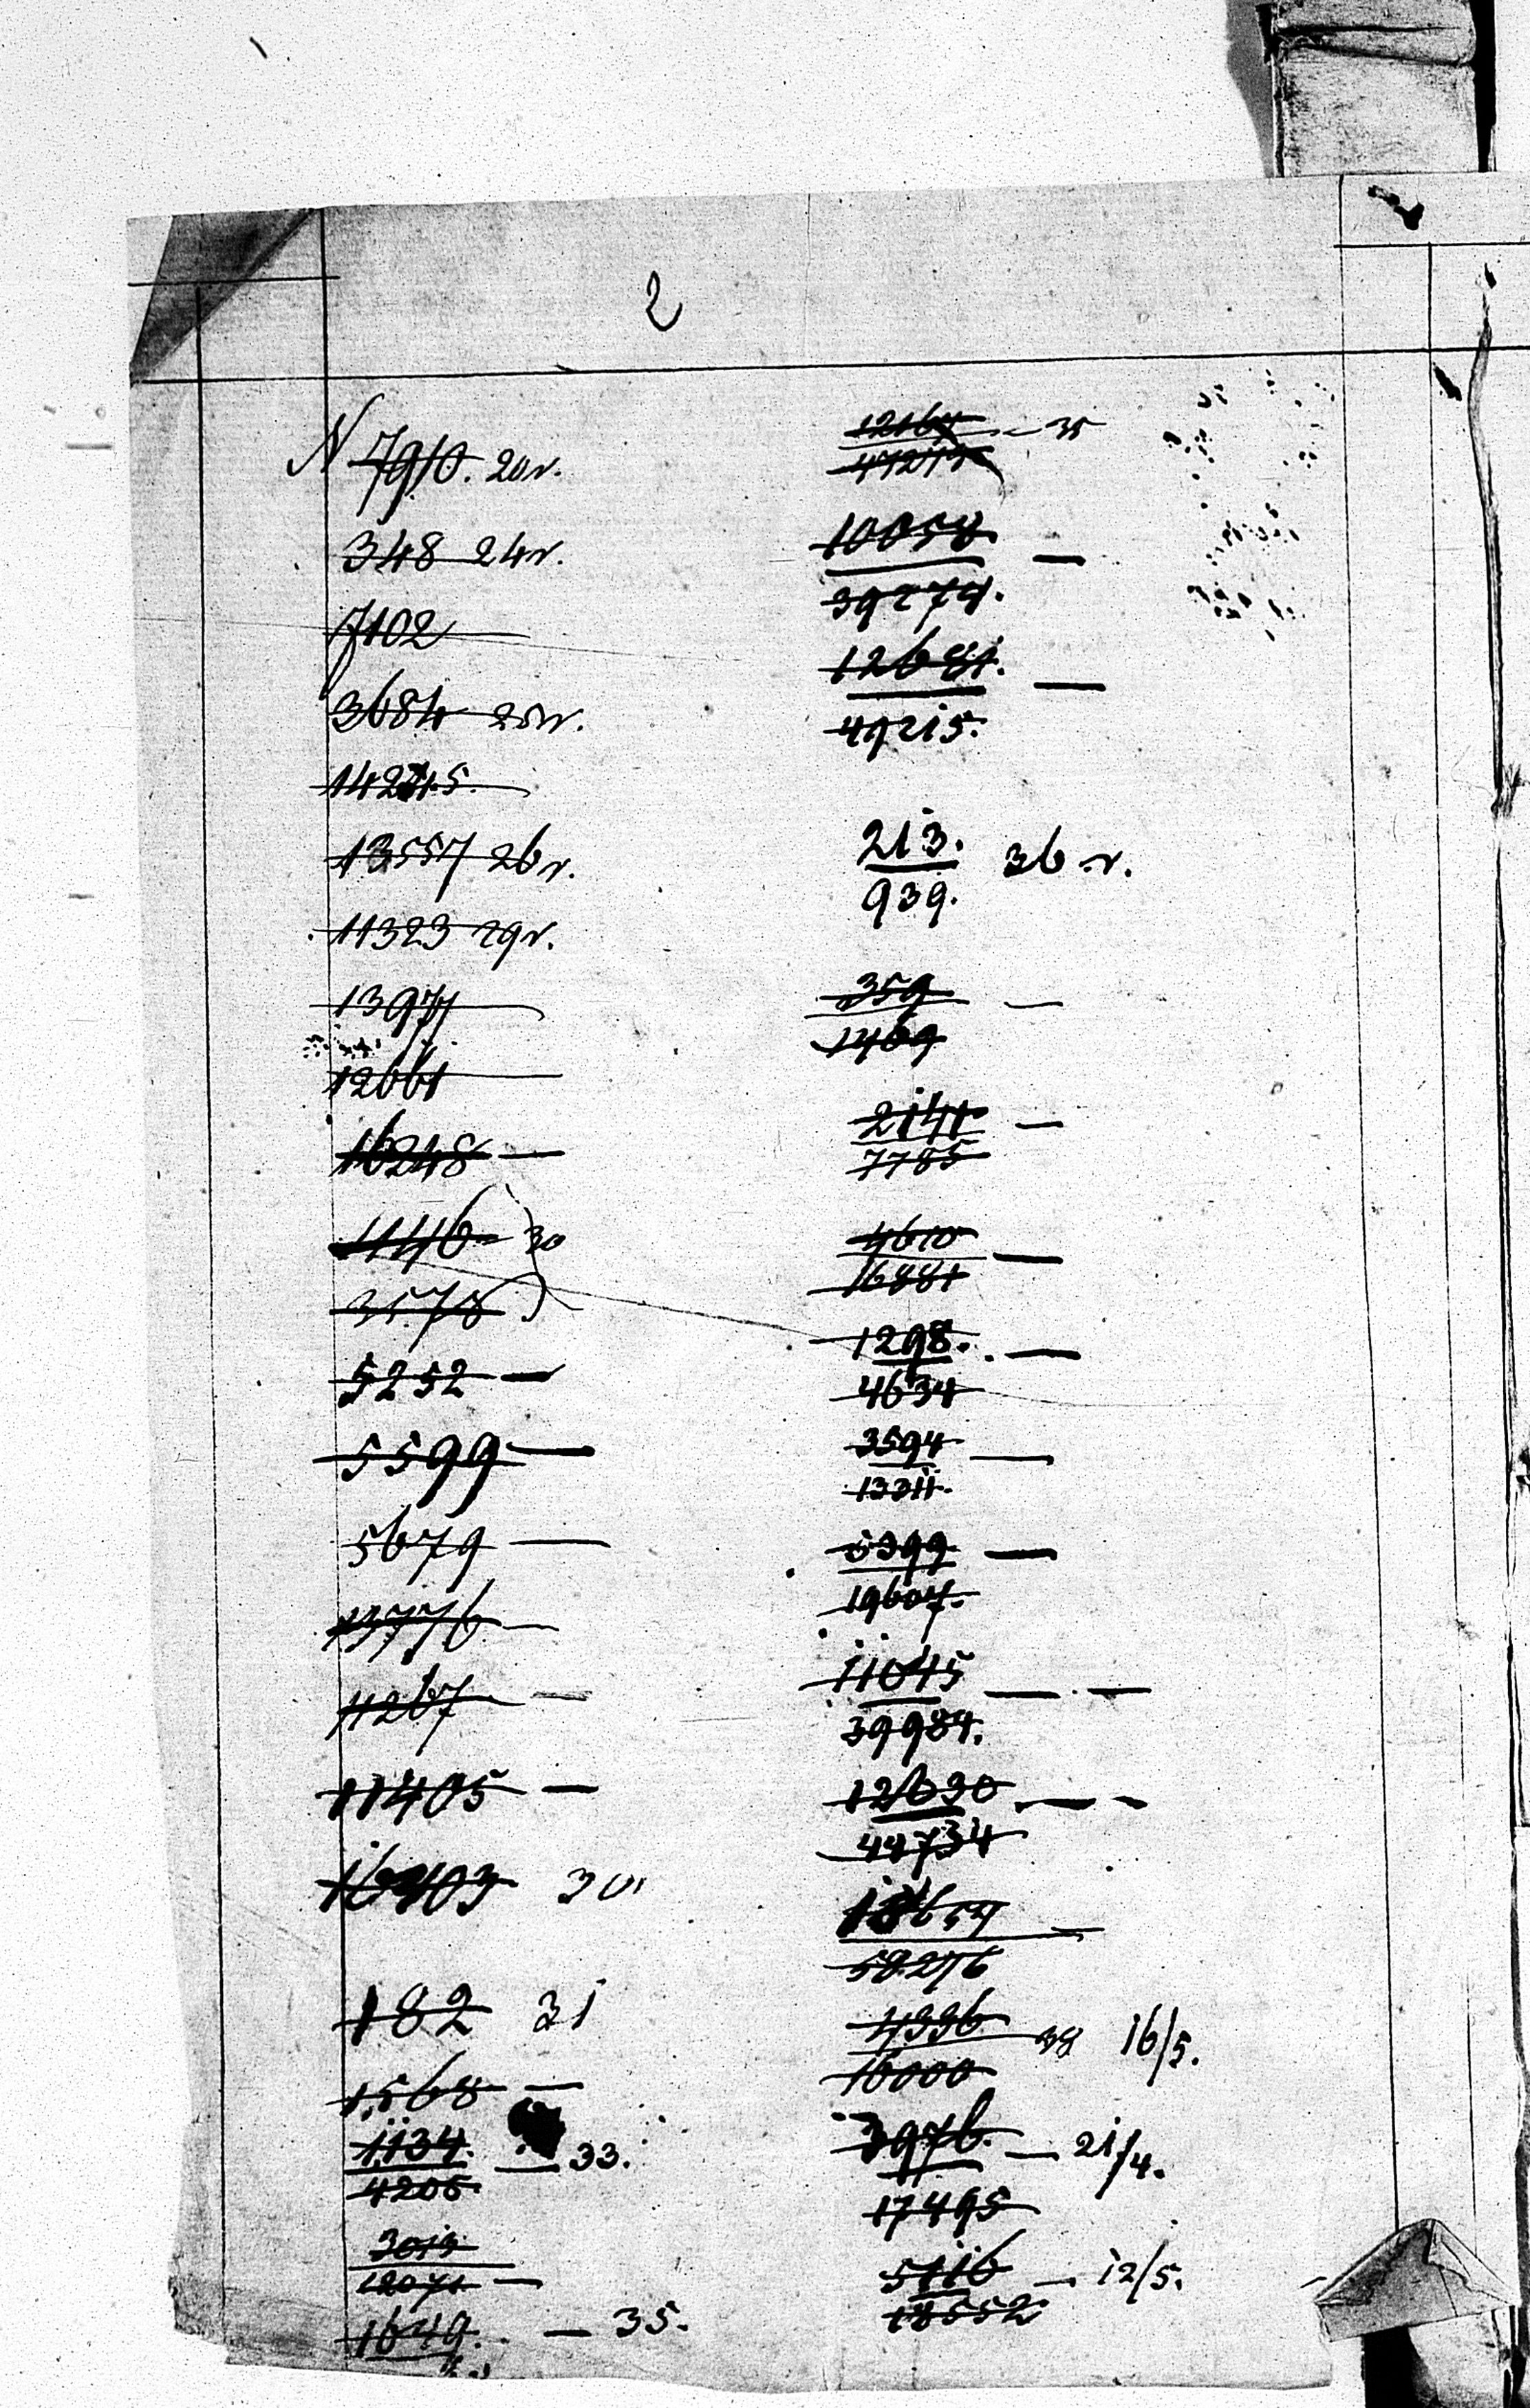 2
N 7910. 20 г.
348 24 г.
7102
3684 25 г.
14215.
13557 26 г.
11323 29 г.
13977
12661
16248 —
1446 - 30
3578
5252 —
5599 —
5679 —
13776 —
11267 —
11405 —
16403 30
182 31
1568 —
1134. — 33.
4205
3013
12071 —
1649. — 35.
12164 — 35
47217
10058 —
39274.
12681. —
49215.
213. 36 г.
939.
359 —
1469
2141 —
7785
4610 —
16881
1298. —
4634
3594 —
13311.
5399 —
19607.
11045 — —
39984.
12630 — -
44734
58276
4336 38 16/5.
16000
3976. — 21/4.
17495
5116 — 12/5.
18552